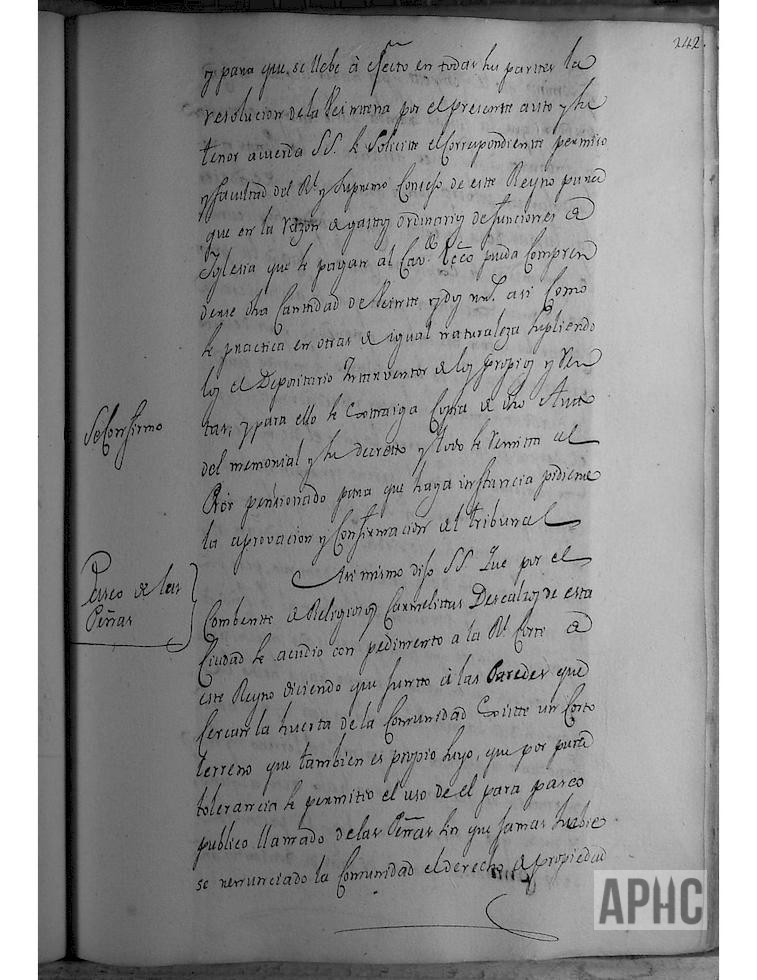 242.
y para que se llebe â efecto en todas su partes la
resolucion de la Reintteria por el presentte auto y su
tenor acuerda SS. se Solicitte el Correspondientte permiso
y facultad del Rl. y Supremo Consejo de estte Reyno para
que en la razon de gasttos ordinarios de funciones de
Iglesia que se pagan al Cavdo. Ecco. pueda Compren
derse dha Canttidad de Reintte y dos mrs. asi Como
se practica en otras de igual naturaleza supliendo
los el Deposittario Intterventor de los propios y Ren
tas, y para ello se Exttraiga Copia de estto Autto
del memorial y su decretto y ttodo se Remitta al
Pror. pensionado para que haga insttancia pidiendo
la aprovacion y Confirmacion del tribunal
Se Confirmo
Paseo de las
Peñas
Asi mismo dijo SS. Que por el
Combentto de Religiosos Carmelittas Descalzos de esta
Ciudad se acudio con pedimento a la Rl. Corte de
este Reyno diciendo que juntto à las Paredes que
sercan la huerta de la Comunidad Existte un Corto
terreno que tambien es propio suyo, que por pura
tolerancia se permitio el uso de el para paseo
publico llamado de las Peñas sin que jamas hubie
se rernunciado la Comunidad el derecho de propiedad
APHC